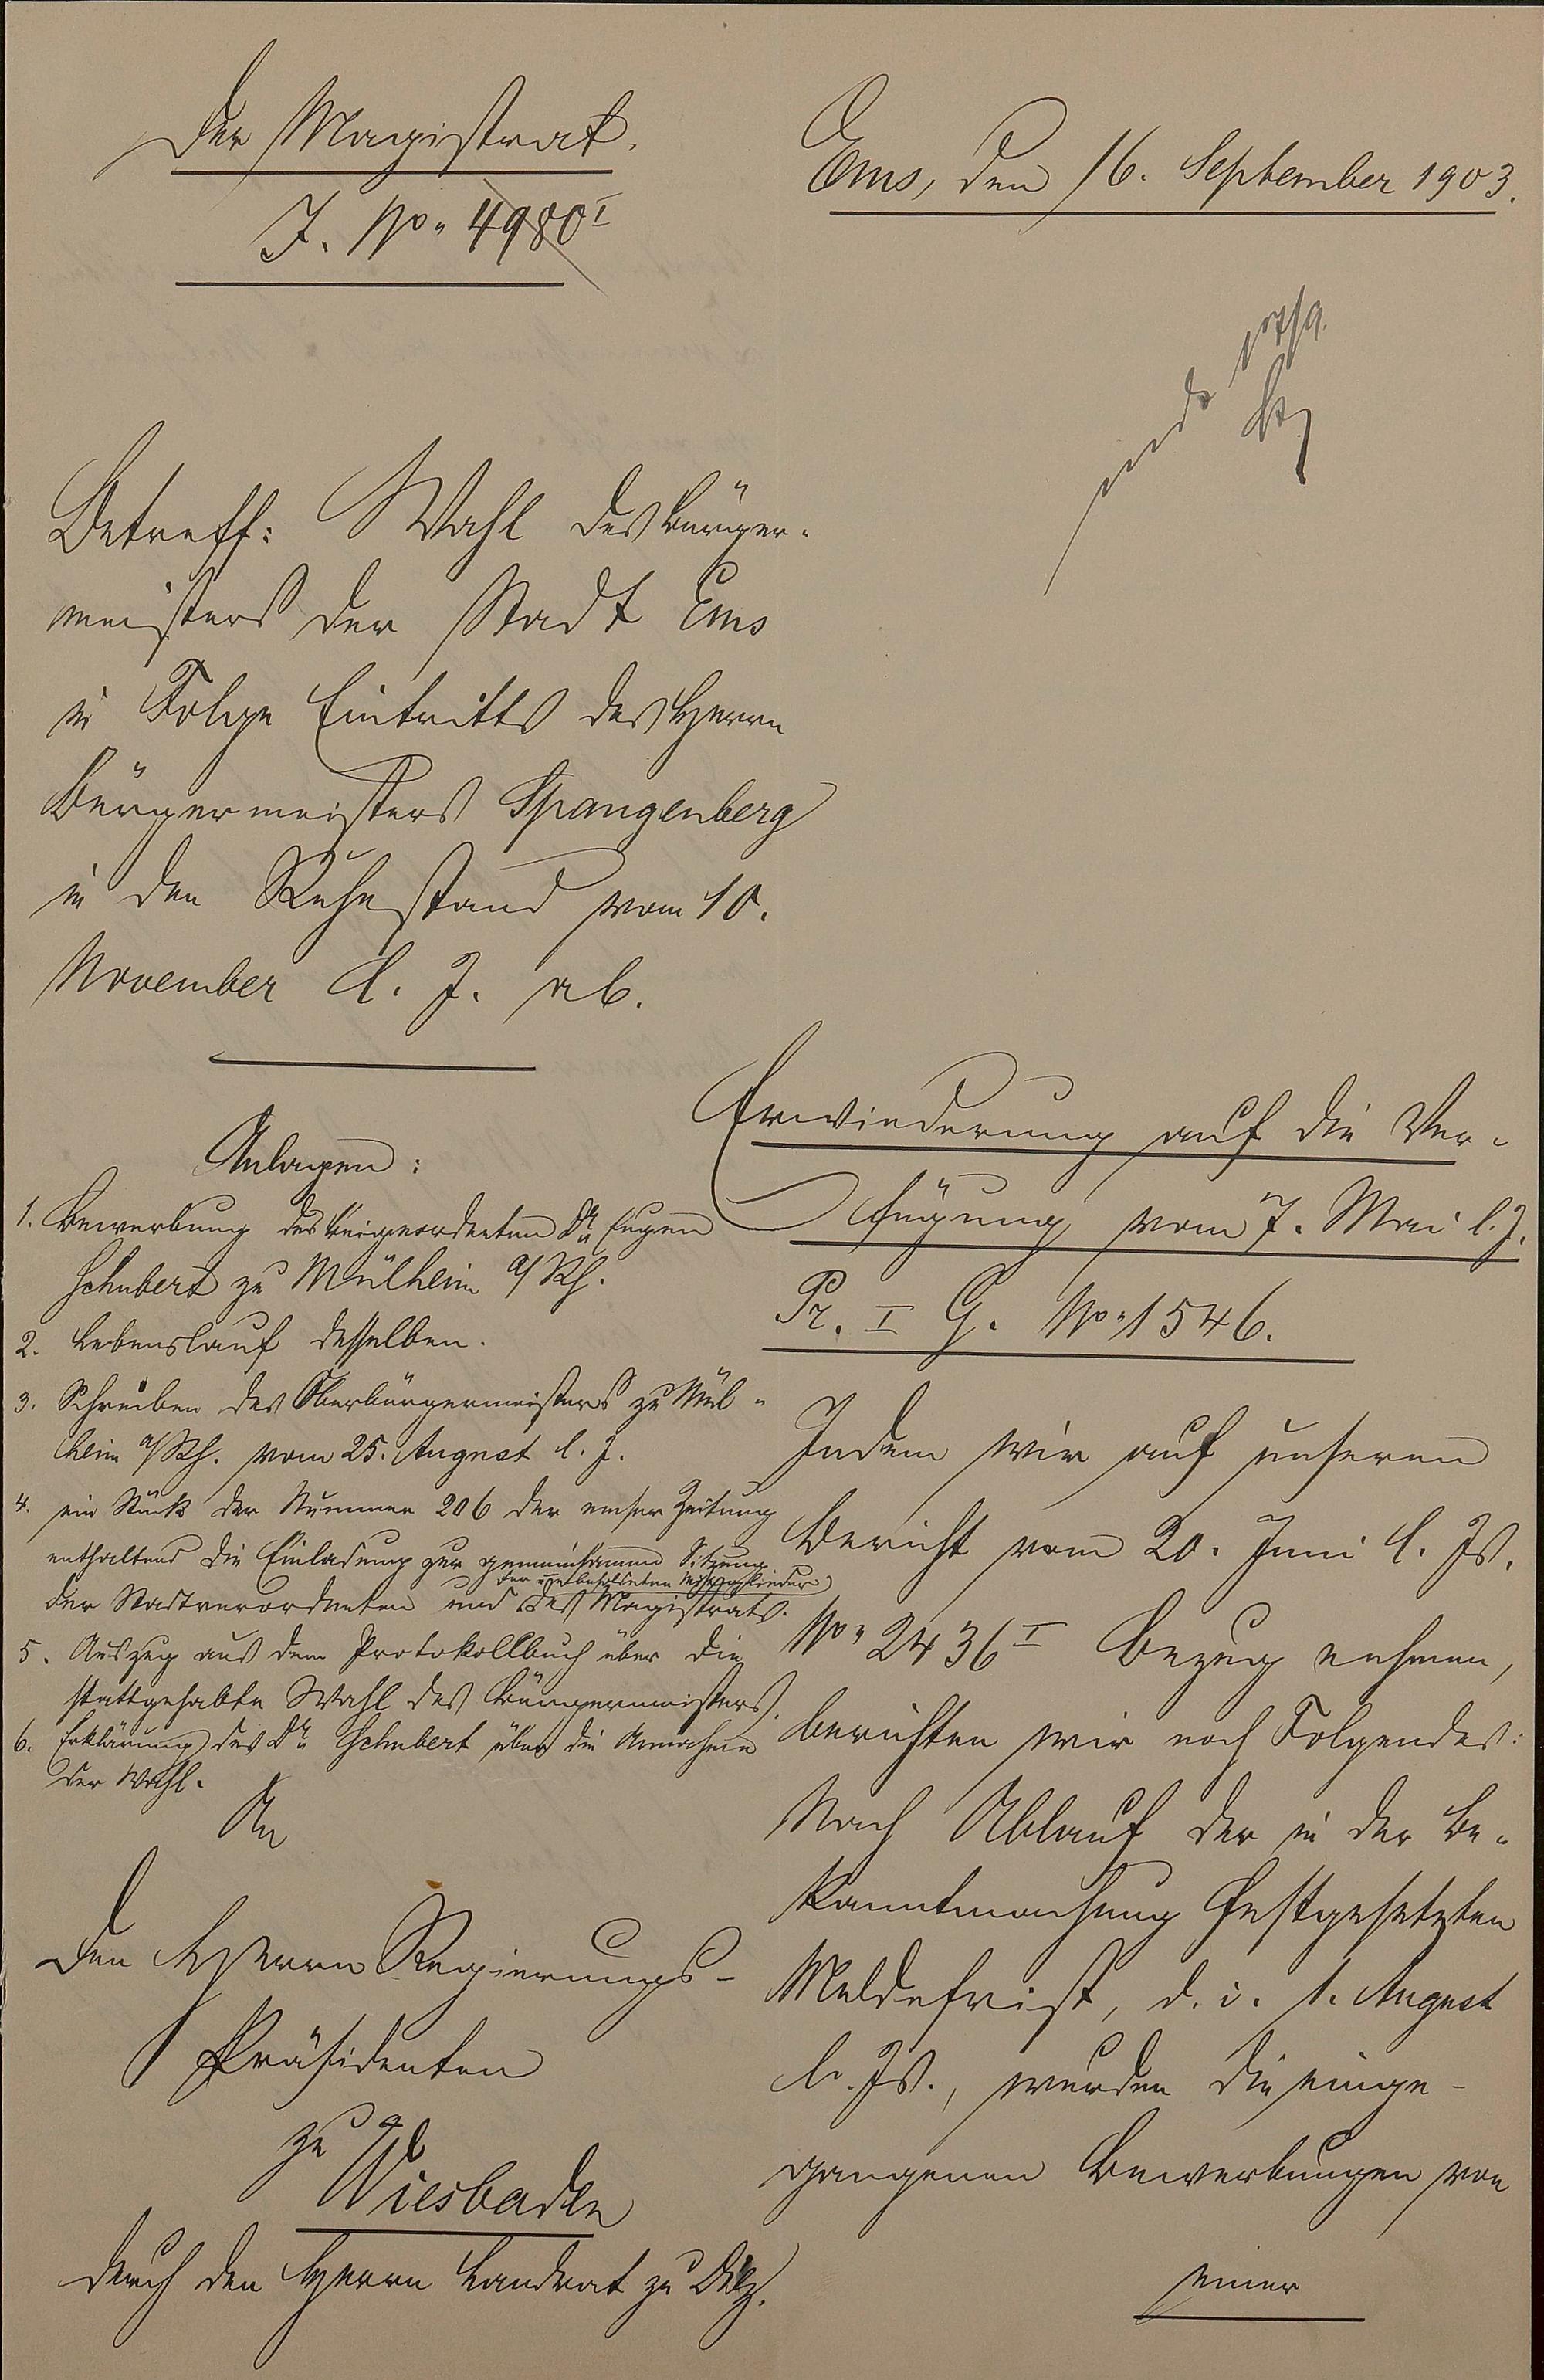 Der Magistrat.
J. No. 4980 I
Ems, den 16. September 1903.
Betreff: Wahl des Bürger-
meisters der Stadt Ems
in Folge Eintritts des Herrn
Bürgermeisters Spangenberg
in den Ruhestand vom 10.
November l. J. ab.
Anlagen:
1. Bewerbung des Beigeordneten Dr. Eugen
Schubert zu Mülheim a/Rh.
2. Lebenslauf desselben.
3. Schreiben des Oberbürgermeisters zu Mül-
heim a/Rh. vom 25. August l. J.
4. ein Stück der Nummer 206 der Emser Zeitung
enthaltend die Einladung zur gemeinsamen Sitzung
der unbesoldeten Mitglieder
der Stadtverordneten und des Magistrats.
5. Auszug aus dem Protokollbuch über die
stattgehabte Wahl des Bürgermeisters.
6. Erklärung des Dr. Schubert über die Annahme
der Wahl.
An
den Herrn Regierungs-
Präsidenten
zu
Wiesbaden
durch den Herrn Landrat zu Diez.
Erwiederung auf die Ver-
fügung vom 7. Mai l. J.
Pr. I G. No. 1546.
Indem wir auf unseren
Bericht vom 20. Juni l. Js.
No. 2436 I Bezug nehmen,
berichten wir noch Folgendes:
Nach Ablauf der in der Be-
kanntmachung festgesetzten
Meldefrist, d. i. 1. August
l. Js., wurden die einge-
gangenen Bewerbungen von
einer